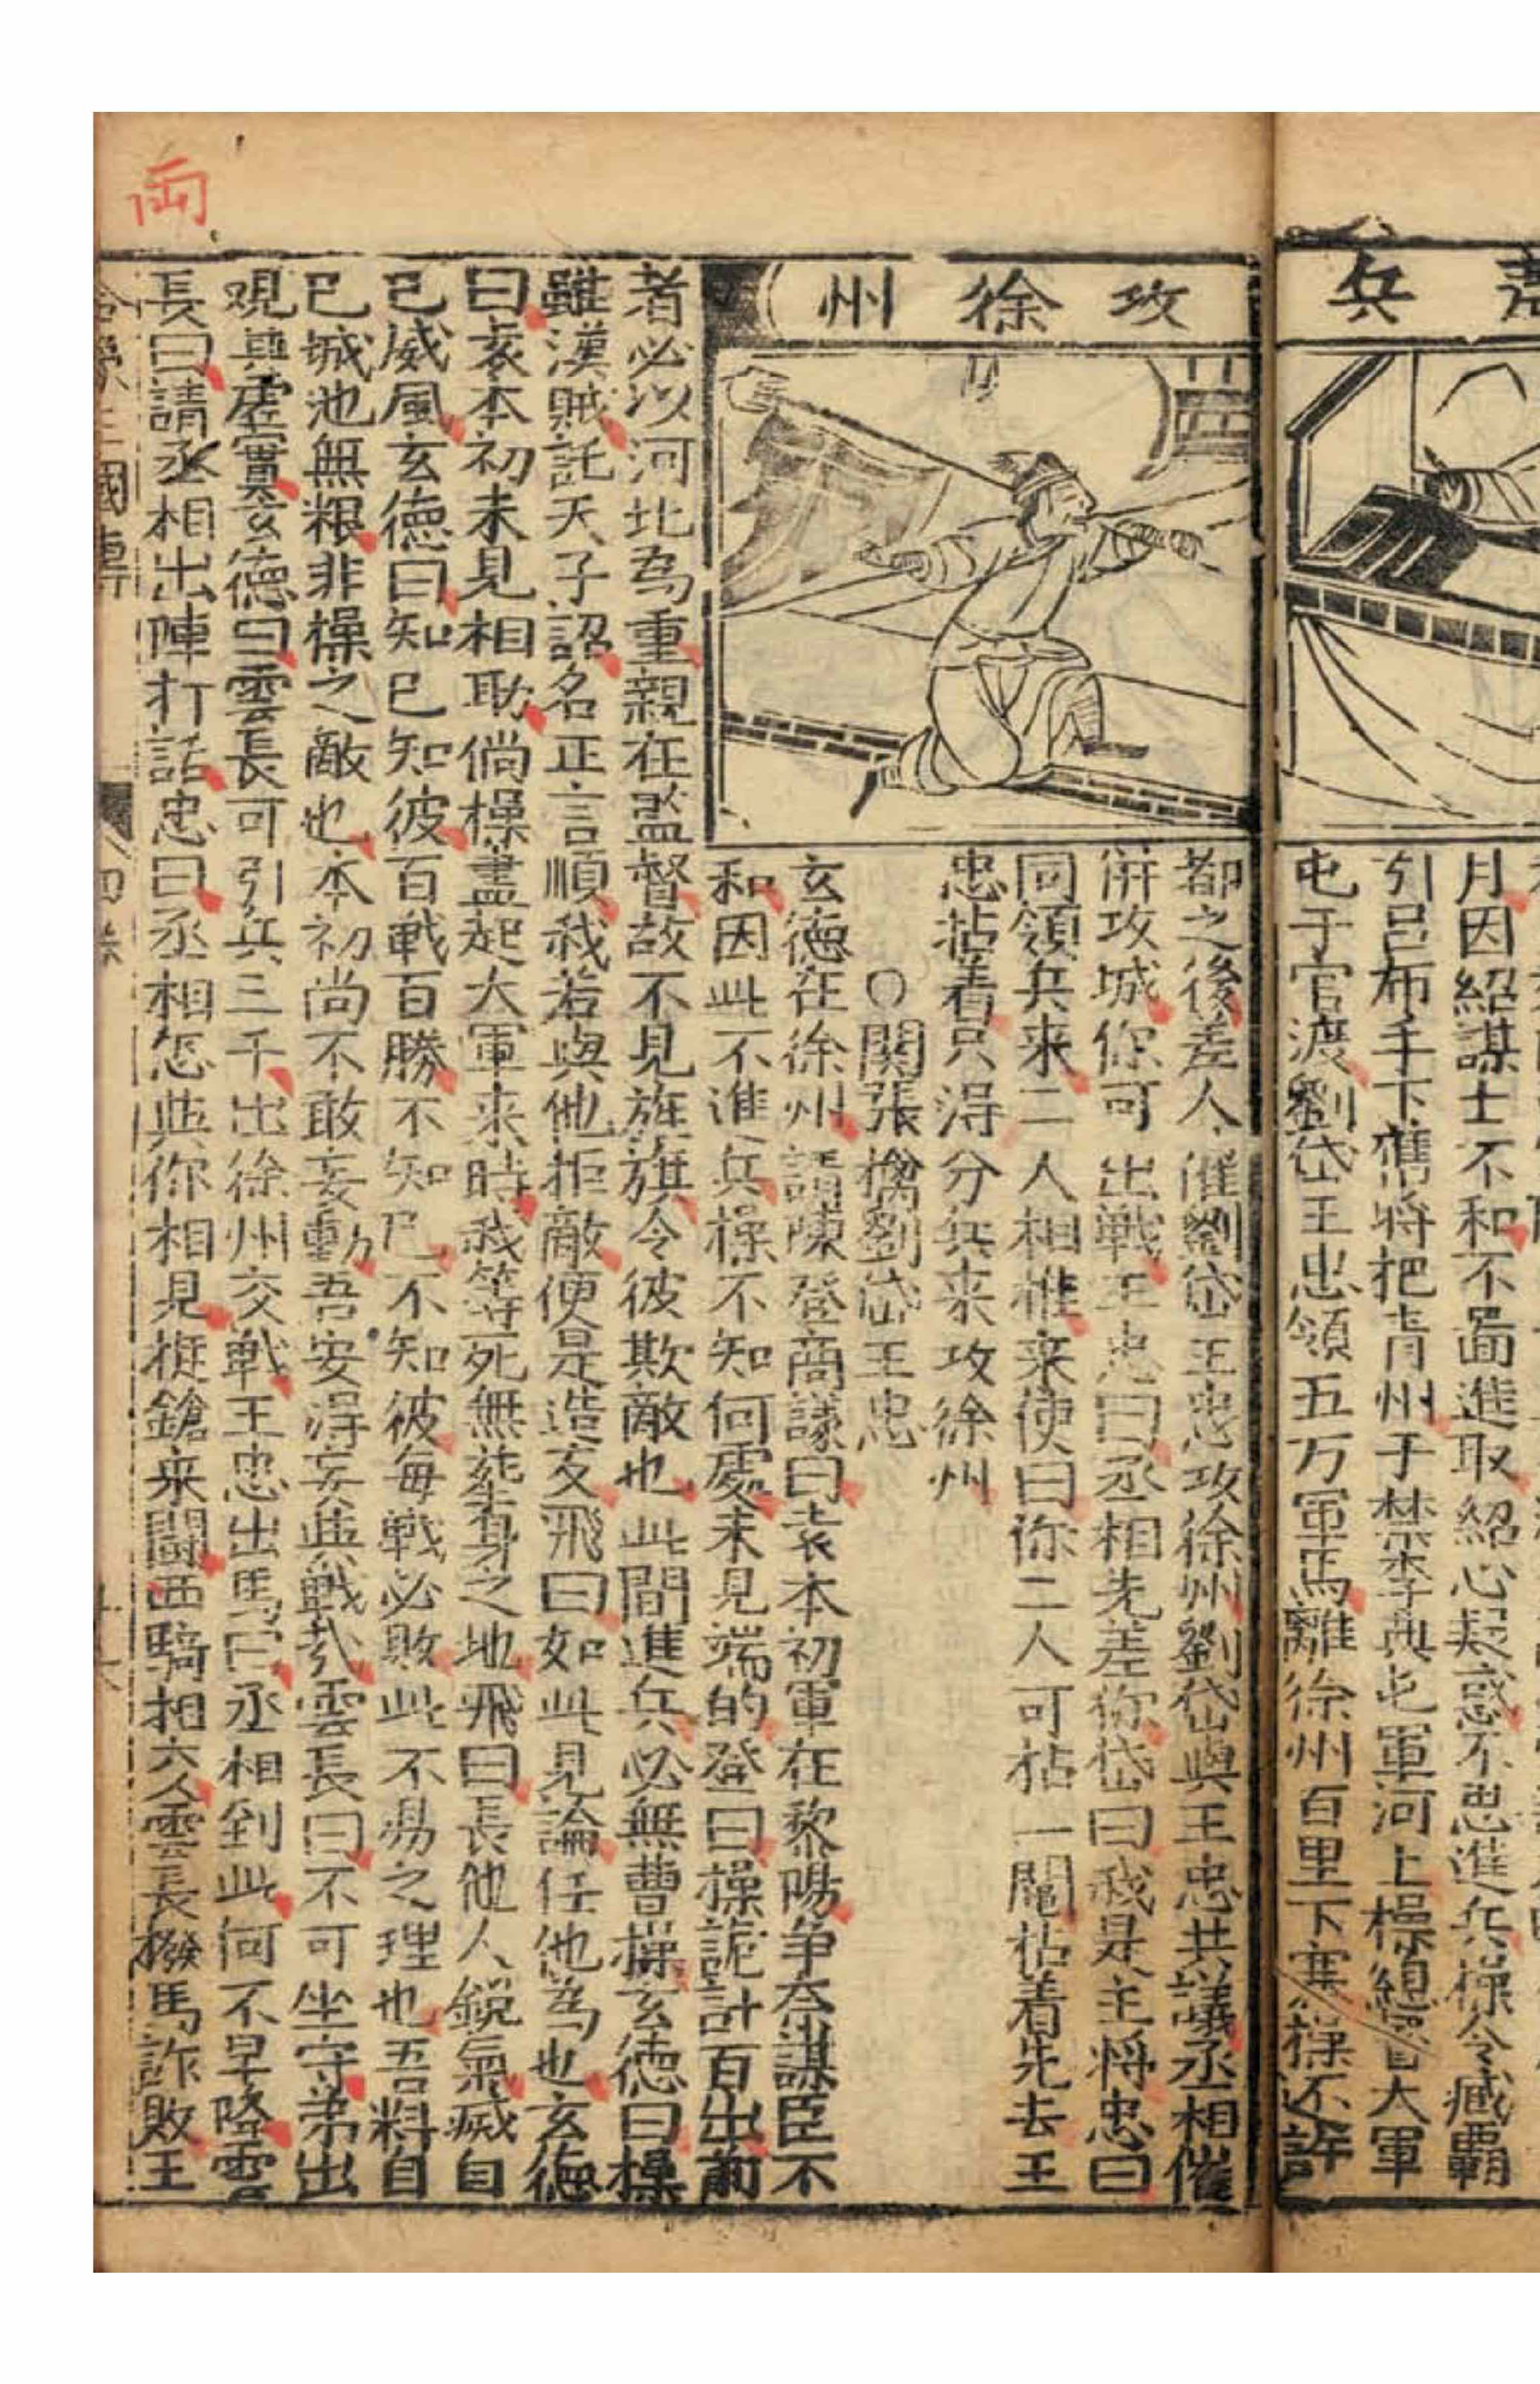 兵
月因紹謀士不和不啚進取紹心疑惑不思進兵操令臧霸
引呂布手下舊將把青州于禁李典屯軍河上操總督大軍
屯于官渡劉岱王忠領五万軍馬離徐州百里下寨操不許
攻徐州
都之後差人催劉岱王忠攻徐州劉岱與王忠共議丞相催
併攻城你可出戰王忠曰丞相先差你岱曰我是主將忠曰
同領兵来二人相推来使曰你二人可拈一鬮拈着先去王
忠拈着只淂分兵来攻徐州
○関張擒劉岱王忠
玄德在徐州請陳登商議曰袁本初軍在黎陽争奈謀臣不
和因此不進兵操不知何處未見端的登曰操詭計百出前
者必以河北為重親在監督故不見旌旗令彼欺敵也此間進兵必無曹操玄德曰操
雖漢賊託天子詔名正言順我若與他拒敵便是造反飛曰如此見論任他為也玄德
曰袁本初未見相助倘操盡起大軍来時我等死無塟身之地飛曰長他人銳氣滅自
已威風玄德曰知已知彼百戰百勝不知已不知彼每戰必敗此不易之理也吾料自
已城池無粮非操之敵也本初尚不敢妄動吾安淂妄與戰㢤雲長曰不可坐守弟出
观其虛實玄德曰雲長可引兵三千出徐州交戰王忠出馬曰丞相到此何不早降雲
長曰請丞相出陣打話忠曰丞相怎與你相見挺鎗来鬪西騎相交雲長撥馬詐敗王
両
三國傳